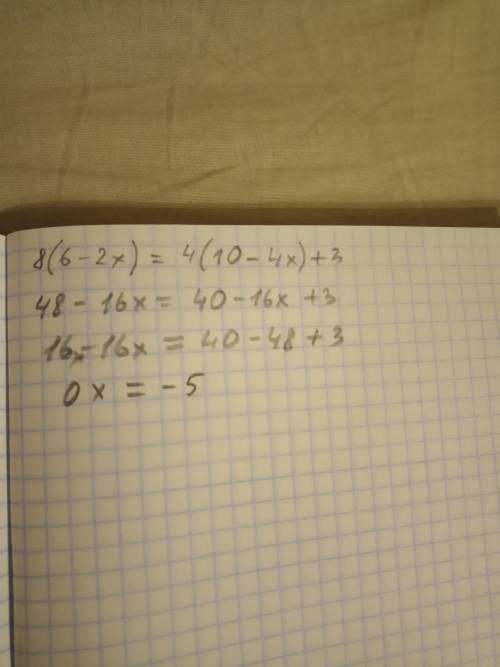 8(6-2x) = 4(10-4x)+3
48 - 16x = 40 - 16x + 3
16x - 16x = 40 - 48 + 3
0x = -5